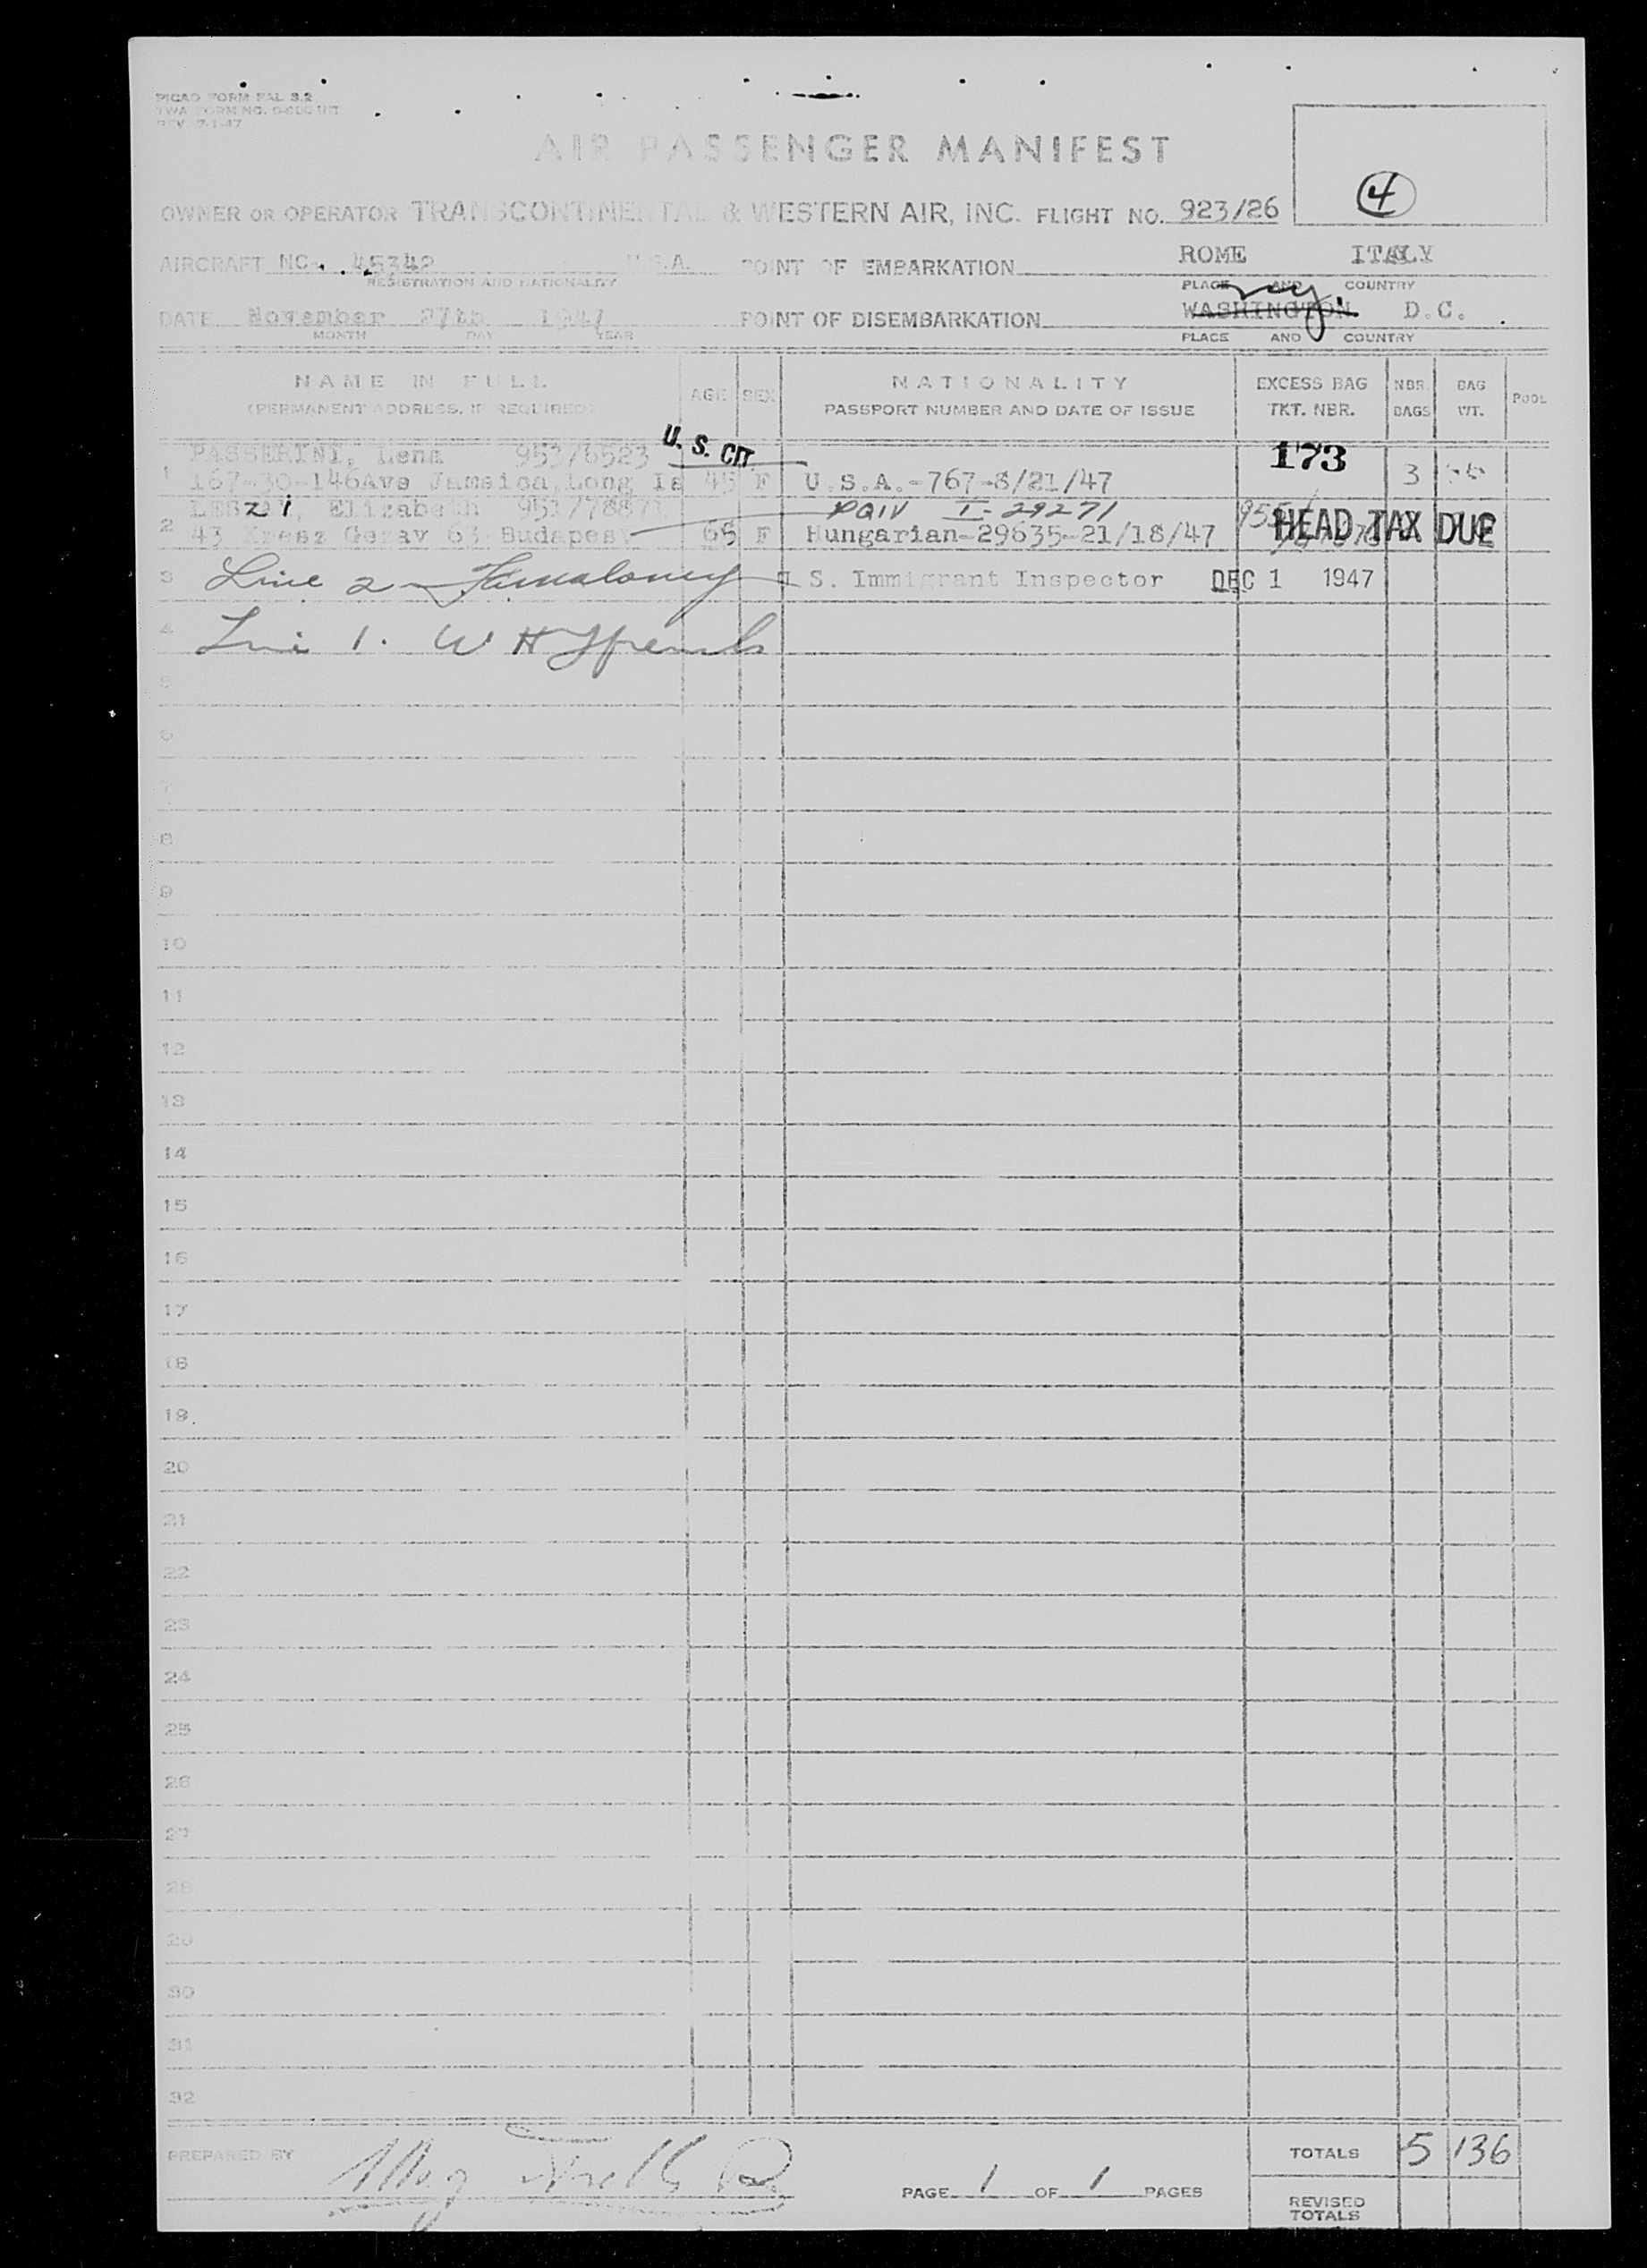 PICAO FORM FAL 3.2
TWA FORM NO.
REV. 7-1-47
AIR PASSENGER MANIFEST
4
OWNER OR OPERATOR TRANSCONTINENTAL & WESTERN AIR, INC. FLIGHT NO. 923/26
AIRCRAFT NC- 45342 U.S.A. POINT OF EMBARKATION ROME ITALY
REGISTRATION AND NATIONALITY PLACE AND COUNTRY
ny.
DATE November 27th 1947 POINT OF DISEMBARKATION WASHINGTON D.C.
MONTH DAY YEAR PLACE AND COUNTRY
NAME IN FULL AGE SEX NATIONALITY EXCESS BAG NBR. BAG POOL
(PERMANENT ADDRESS, IF REQUIRED) PASSPORT NUMBER AND DATE OF ISSUE TKT. NBR. BAGS WT.
PASSERINI, Lena 953/6523 U. S. CIT. 173
1 167-30-146Ave Jamaica, Long Is 45 F U.S.A.-767-8/21/47 3
Elizabeth 951/78871 PQIV I-29271 955/
2 43 Kresz Gezav 63 Budapest 65 F Hungarian-29635-21/18/47 HEAD TAX DUE
3 Line 2 Jamaloney S. Immigrant Inspector DEC 1 1947
4 Line 1. W H
5
6
7
8
9
10
11
12
13
14
15
16
17
18
19
20
21
22
23
24
25
26
27
28
29
30
31
32
PREPARED BY TOTALS 5 136
PAGE 1 OF 1 PAGES
REVISED
TOTALS